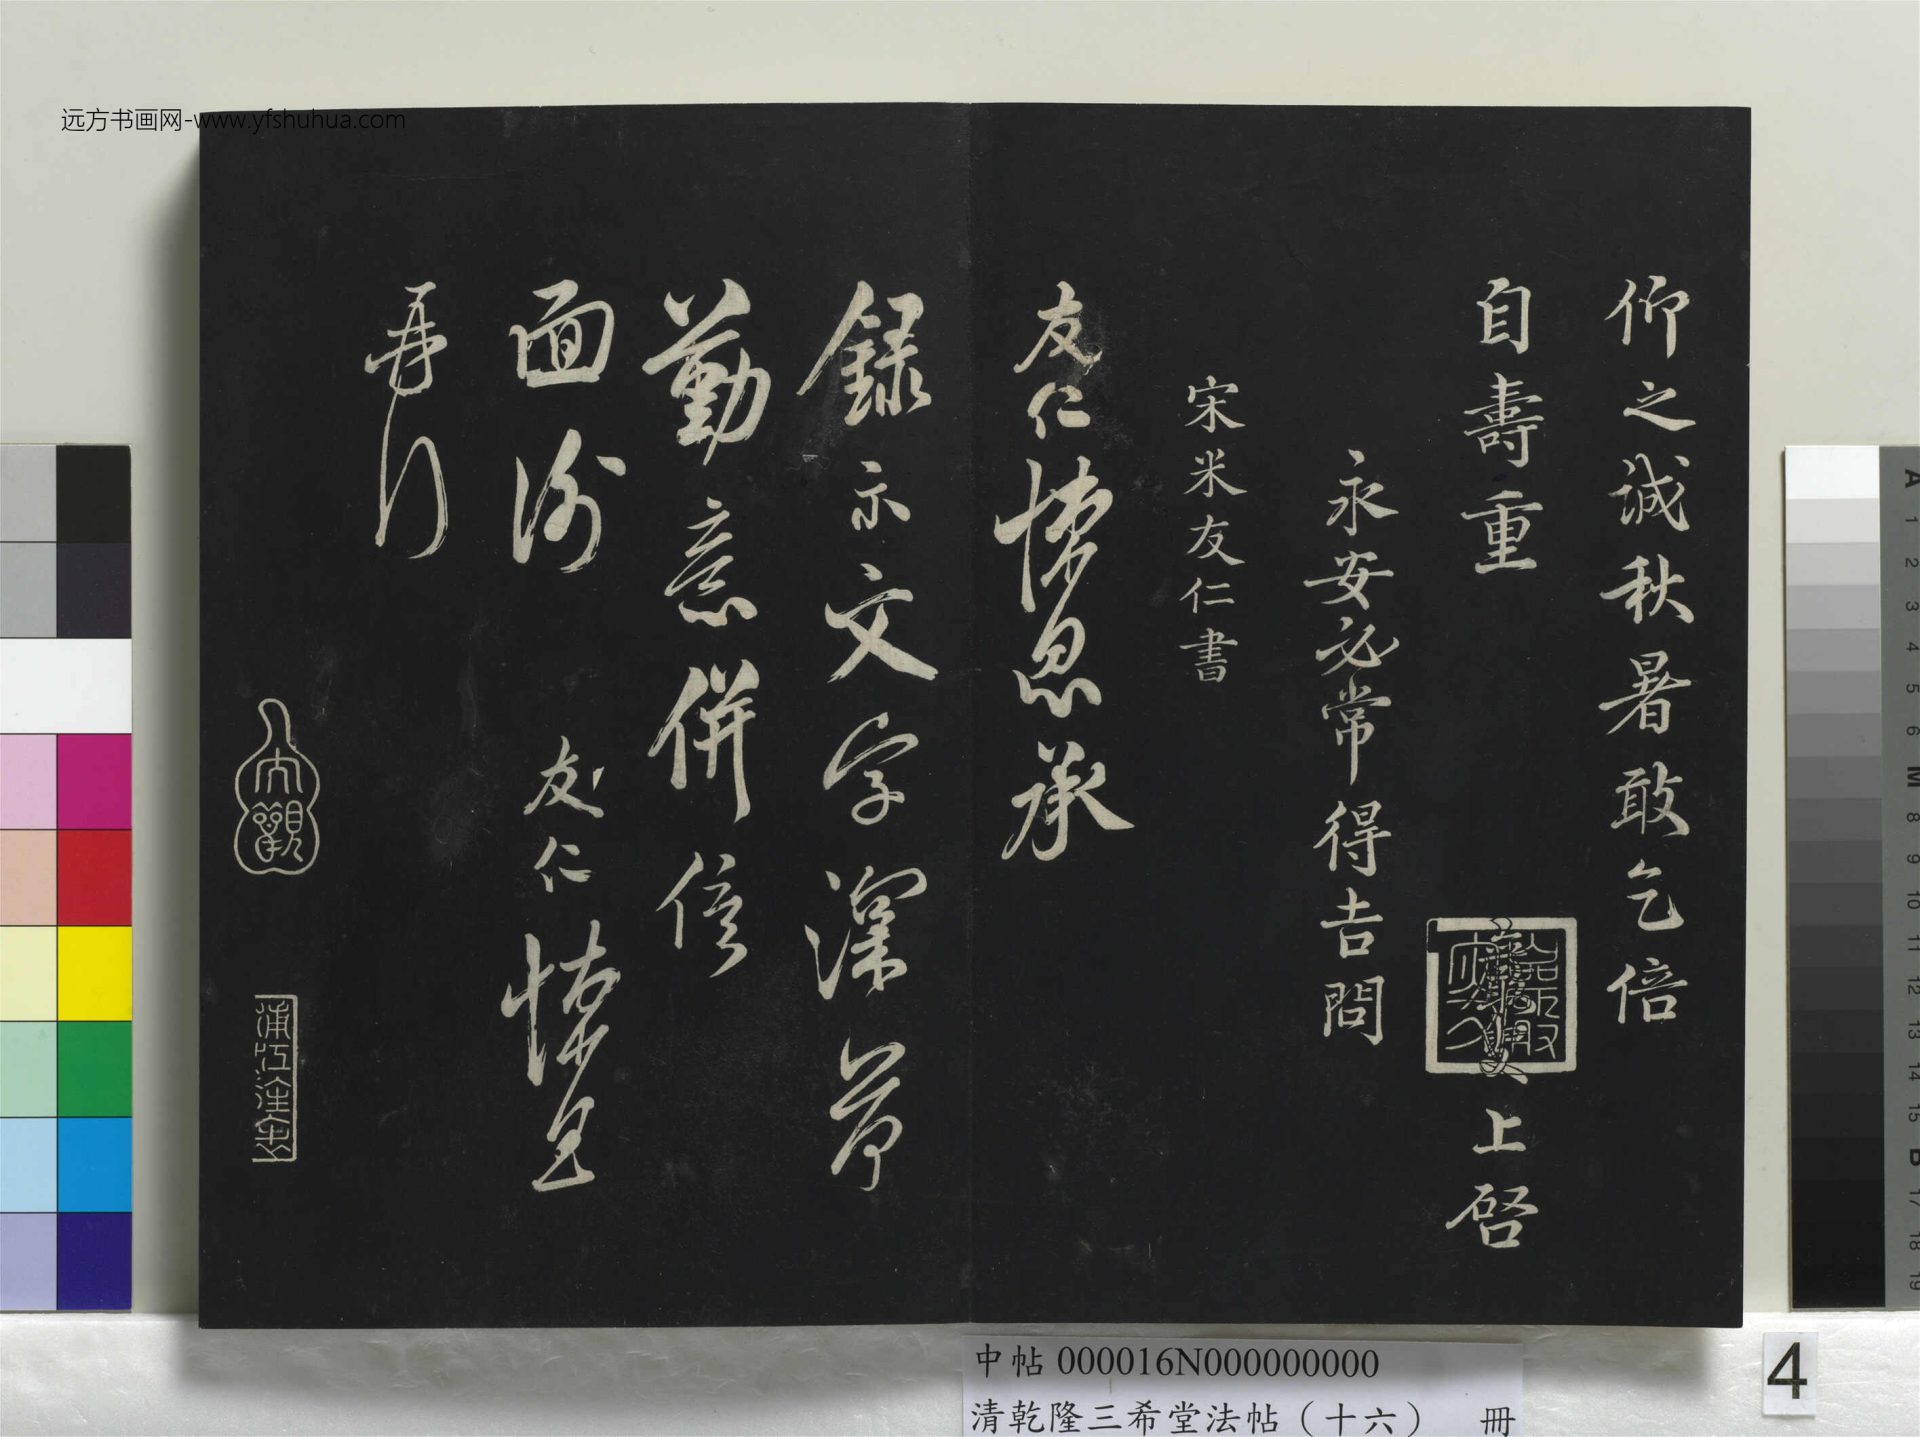 远方书画网-www.yfshuhua.com
仰之誠秋暑敢乞倍
自壽重
上啓
永安必常得吉問
宋米友仁書
友仁悚息承
錄示文字深荷
勤意併俟
面谢
友仁悚息
再行
大觀
浦江
中帖000016N000000000
清乾隆三希堂法帖（十六） 冊
4
A
1
2
3
4
5
6
M
8
9
10
11
12
13
14
15
B
17
18
19